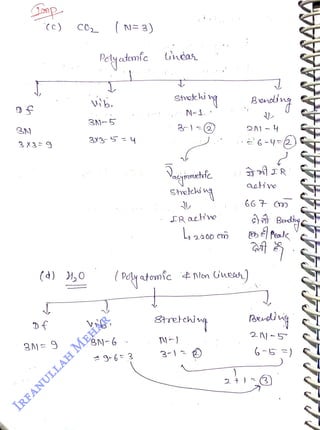 Imp
(c) CO₂ (N=3)
Polyatomic Linear
Df Vib. Stretching Bending
3N 3N-5 N-1 2N-4
3x3=9 3x3-5=4 3-1=2 6-4=2
asymmetric
Stretching
IR active
ये भी IR
active
667 cm
दोनों Bending
एक ही Peak
देती हैं
(d) H₂O (Polyatomic & Non Linear)
Df Vib. Stretching Bending
3N=9 3N-6 N-1 2N-5
=9-6=3 3-1=2 6-5=1
2+1=3
IRFANULLAH MEHAR